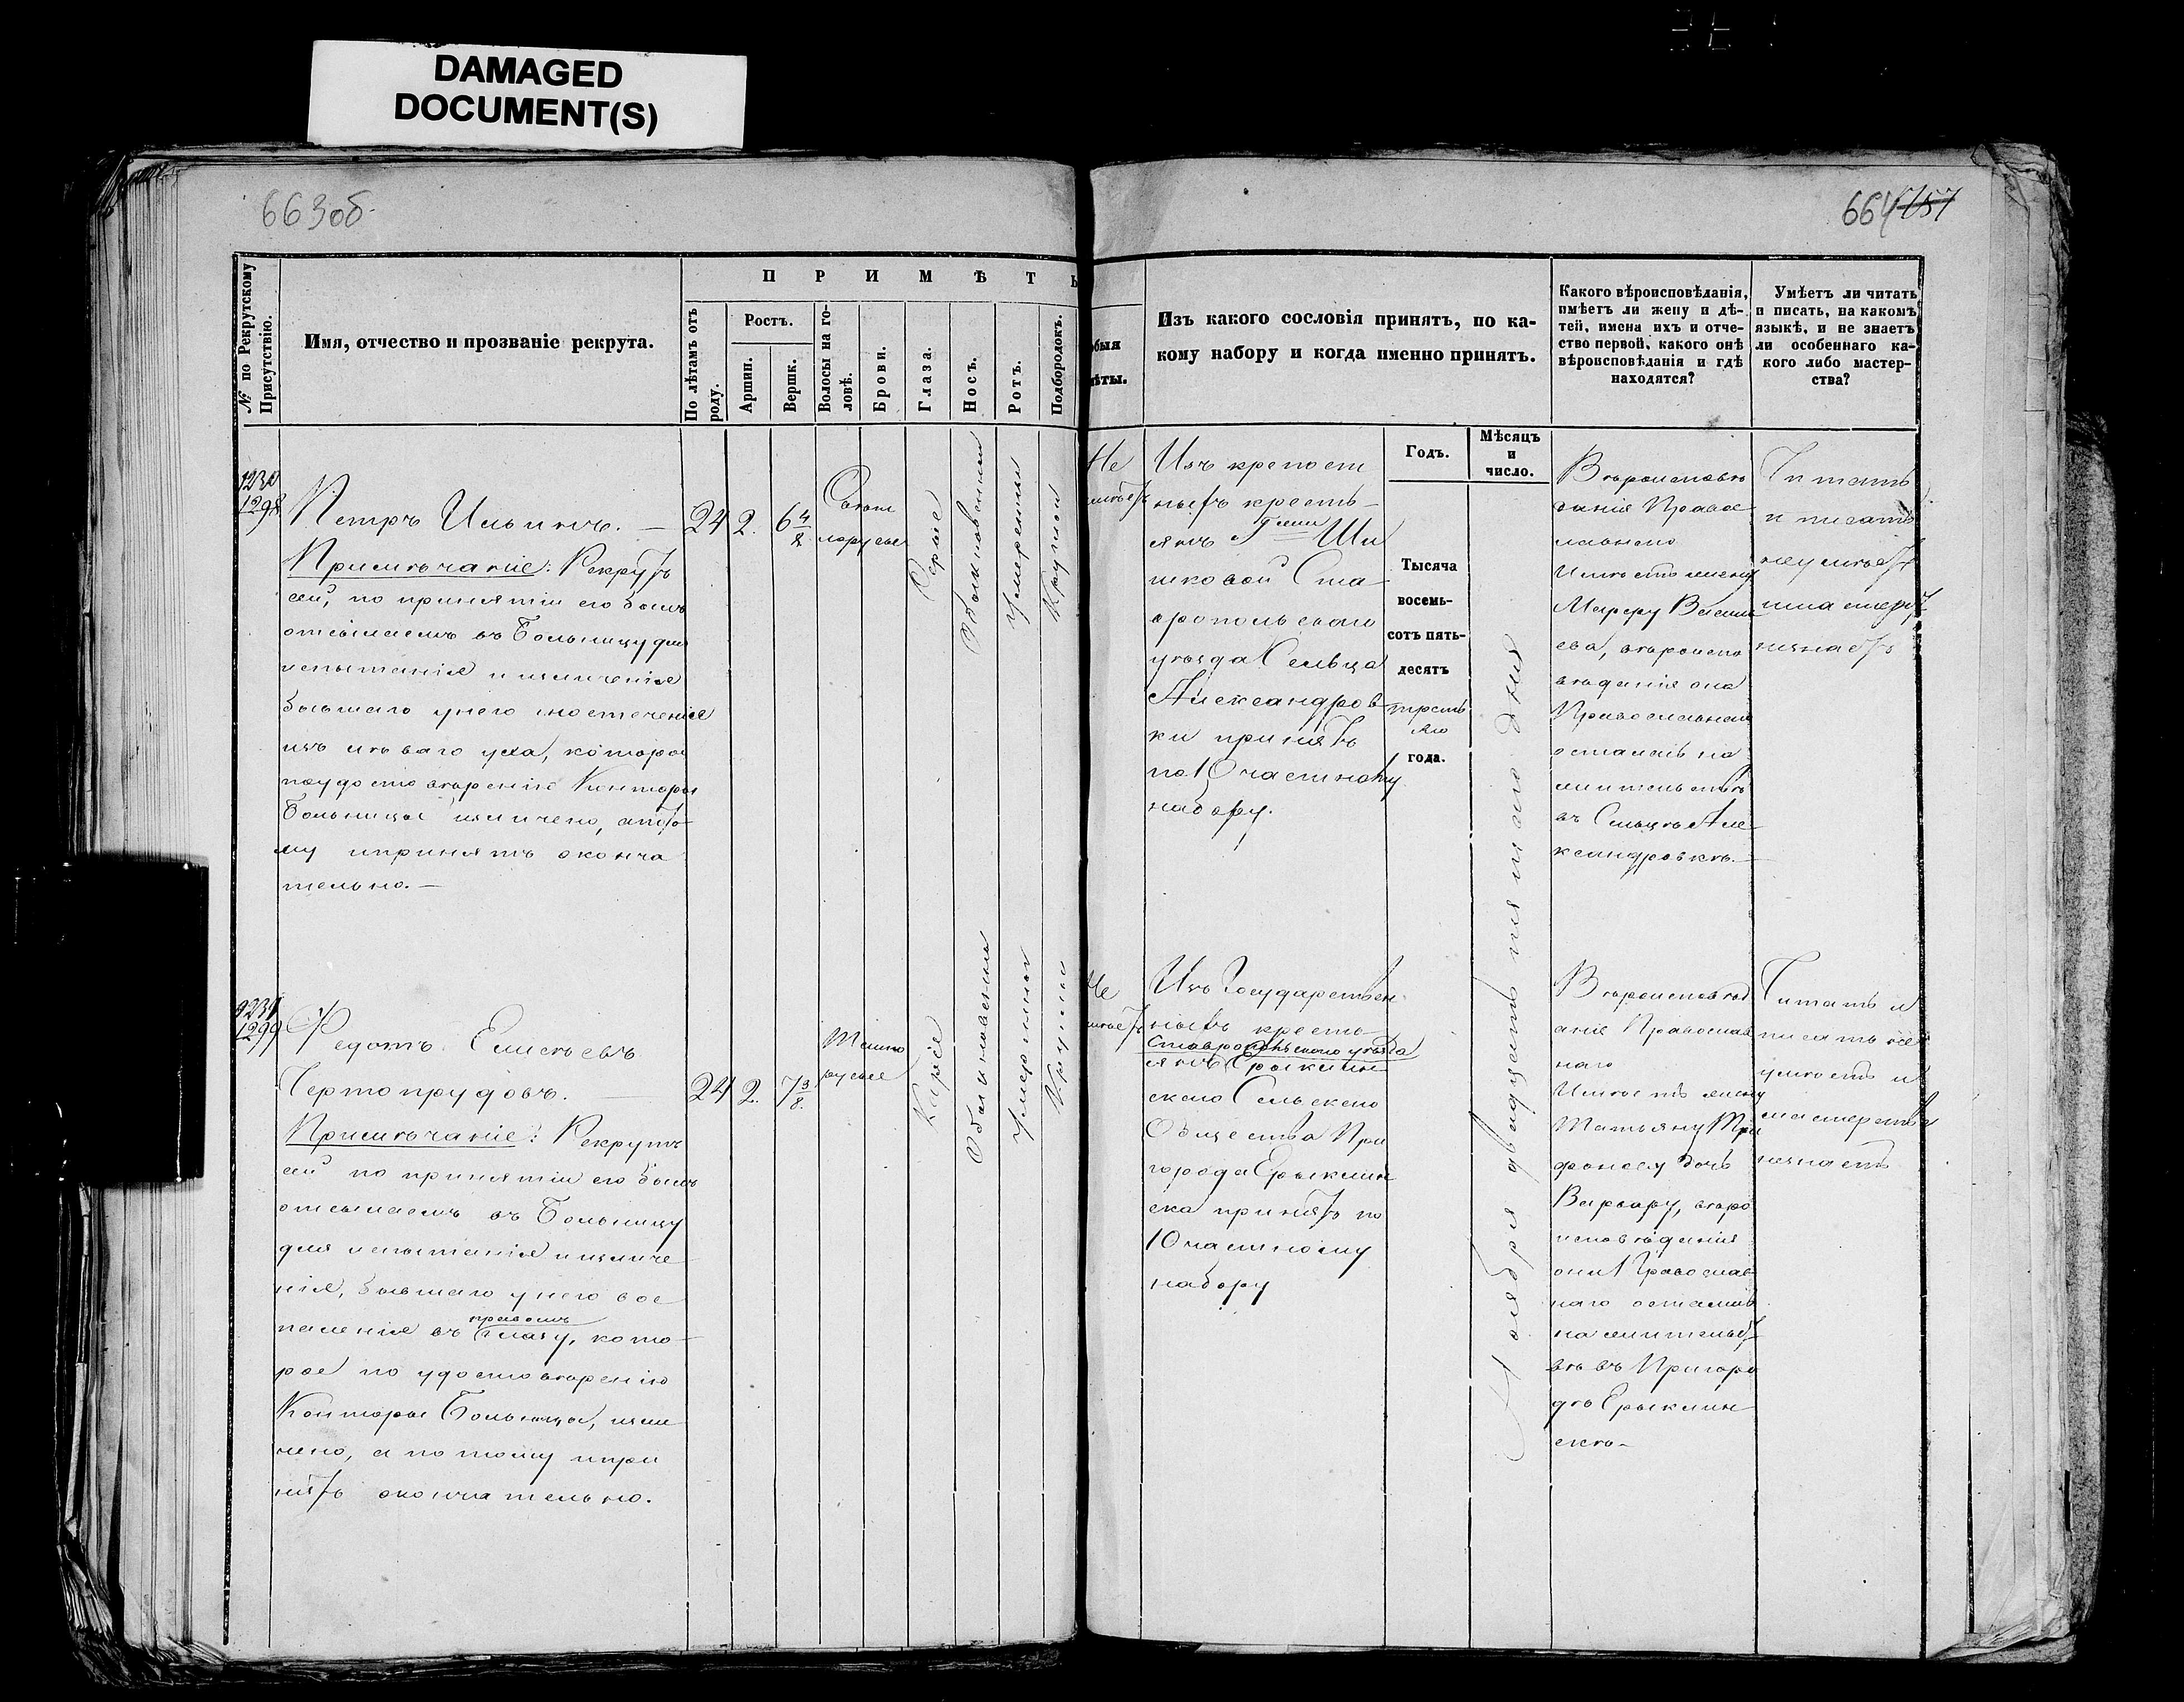 DAMAGED
DOCUMENT(S)
663об.
664 757
№ по Рекрутскому
Присутствію.
Имя, отчество и прозваніе рекрута.
ПРИМѢТЫ
По лѣтамъ отъ
роду.
Ростъ.
Аршин.
Вершк.
Волосы на го-
ловѣ.
Брови.
Глаза.
Носъ.
Ротъ.
Подбородокъ.
обыя
мѣты.
Изъ какого сословія принятъ, по ка-
кому набору и когда именно принятъ.
Годъ.
Мѣсяцъ
и
число.
Какого вѣроисповѣданія,
имѣетъ ли жену и дѣ-
тей, имена ихъ и отче-
ство первой, какого онѣ
вѣроисповѣданія и гдѣ
находятся?
Умѣетъ ли читать
и писать, на какомъ
языкѣ, и не знаетъ
ли особеннаго ка-
кого либо мастер-
ства?
1298
Петръ Ильинъ. —
Примѣчаніе: Рекрутъ
сей, по принятіи его былъ
отсылаемъ въ Больницу для
испытанія и излеченія
бывшаго у него истеченія
изъ лѣваго уха, которое
по удостовѣренію Конторы
Больницы излечено, а пото-
му и принятъ оконча
тельно. —
24
2.
6 4/8
Свѣтло
русые
Сѣрые
Обыкновенный
Умѣренный
Круглой
Не
имѣетъ
Изъ крепост
ныхъ кресть-
янъ Г-жи Ши
шковой Ста
вропольскаго
уѣзда Сельца
Александров-
ки принятъ
по 10 частному
набору.
Тысяча
восемь-
сотъ пять-
десятъ
третья
го
года.
Ноября двадцать пятаго дня
Вѣроисповѣ
данія Правос
лавнаго
Имѣетъ жену
Марфу Василь
ева, вѣроиспо
вѣданія она
Православнаго
осталась на
жительствѣ
въ Сельцѣ Але
ксандровкѣ. —
Читать
и писать
неумѣетъ
и мастерст
незнаетъ
1299
Федотъ Елисѣевъ
Чертопрудовъ. —
Примѣчаніе: Рекрутъ
сей по принятіи его былъ
отсылаемъ въ Больницу
для испытанія и излече
нія, бывшаго у него вос
правомъ
паленія въ глазу, кото-
рое по удостовѣренію
Конторы Больницы, изле
чено, а потому и при
нятъ окончательно.
24
2.
7 3/8.
Темно
русые
Каріе
Обыкновенный
Умѣренный
Круглой
Не
имѣетъ
Изъ Государствен
ныхъ кресть-
Ставропольскаго уѣзда
янъ Ерыклин
скаго Сельскаго
Общества При
города Ерыклин
ска принятъ по
10 частному
набору
Вѣроисповѣд
анія Православ
наго
Имѣетъ жену
Татьяну Три
фонову дочь
Варвару, вѣро
исповѣданія
они Православ
наго остались
на жительст
вѣ въ Пригоро
дѣ Ерыклин
скѣ. —
Читать и
писать не
умѣетъ и
мастерства
незнаетъ